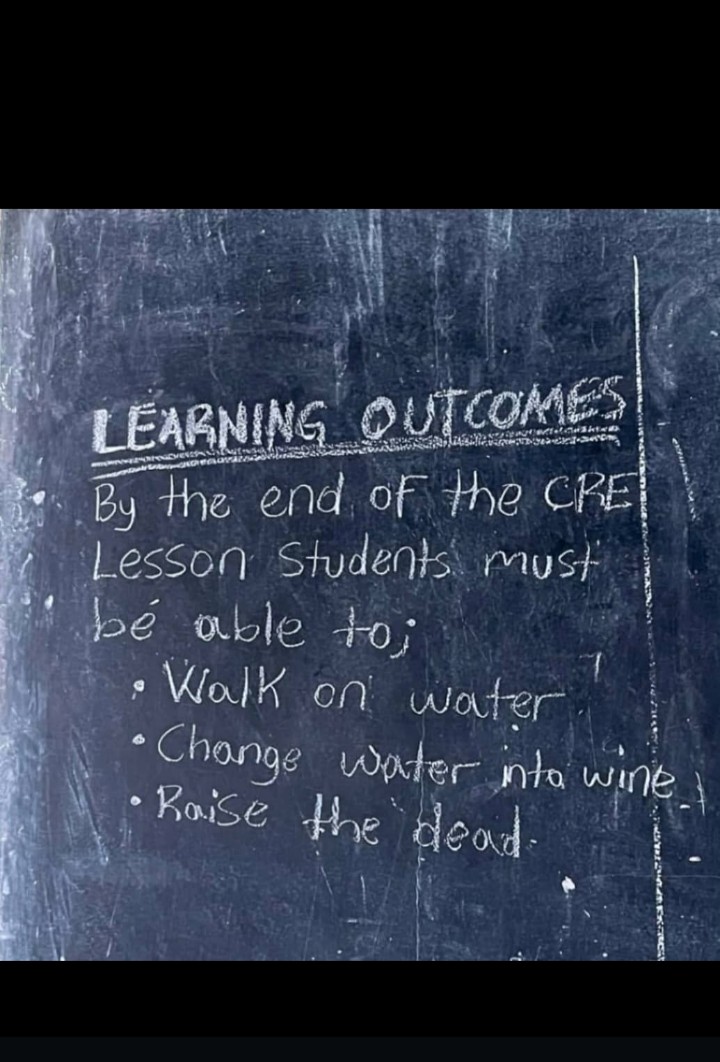 LEARNING OUTCOMES
By the end of the CRE
Lesson Students must
be able to;
• Walk on water
• Change water into wine
• Raise the dead.